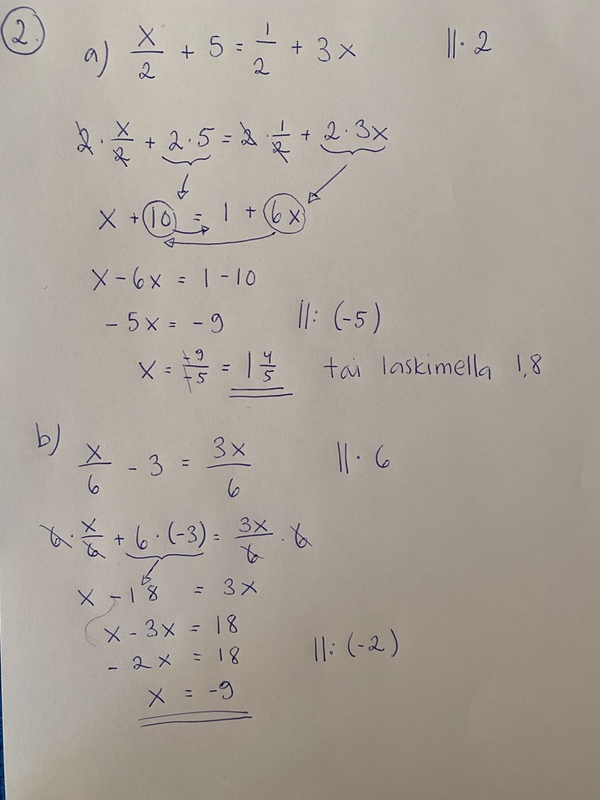 2.
a) x/2 + 5 = 1/2 + 3x ||· 2
2 · x/2 + 2 · 5 = 2 · 1/2 + 2 · 3x
x + 10 = 1 + 6x
x - 6x = 1 - 10
- 5x = - 9 ||: (-5)
x = -9/-5 = 1 4/5 tai laskimella 1,8
b) x/6 - 3 = 3x/6 ||· 6
6 · x/6 + 6 · (-3) = 3x/6 · 6
x - 18 = 3x
x - 3x = 18
- 2x = 18 ||: (-2)
x = -9